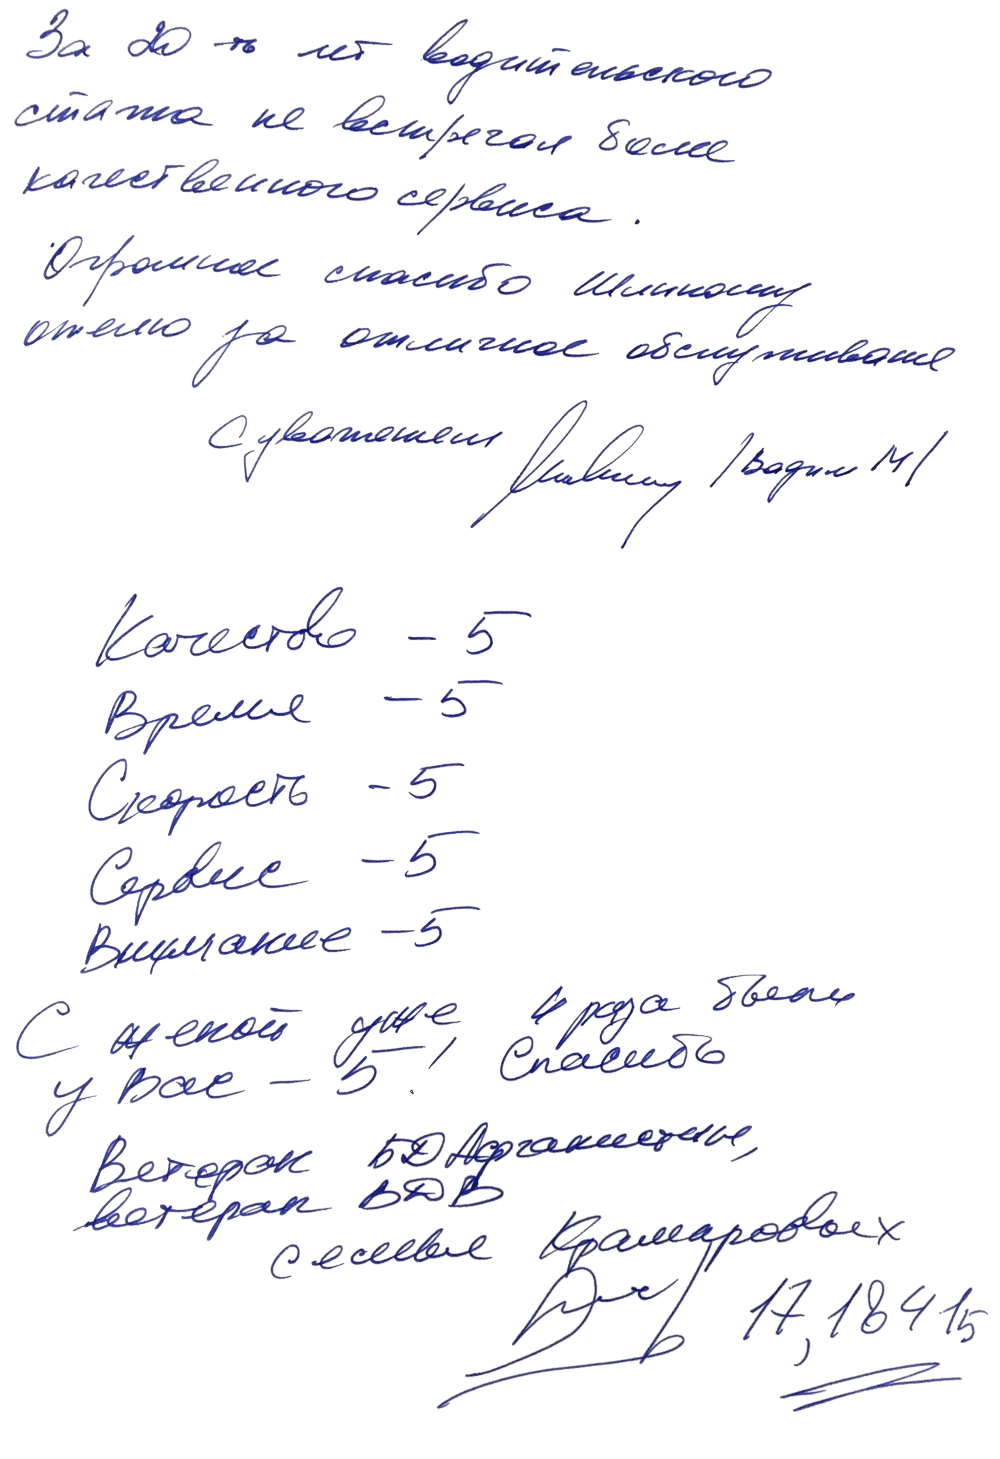 За 20-ть лет водительского
стажа не встречал более
качественного сервиса.
Огромное спасибо Шинному
отелю за отличное обслуживание
С уважением /Вадим М/
Качество - 5
Время - 5
Скорость - 5
Сервис - 5
Внимание - 5
С женой уже 4 раза были
у Вас - 5! Спасибо
Ветеран БД Афганистане,
ветеран ВДВ
семья Крамаровых
17,18 4 15